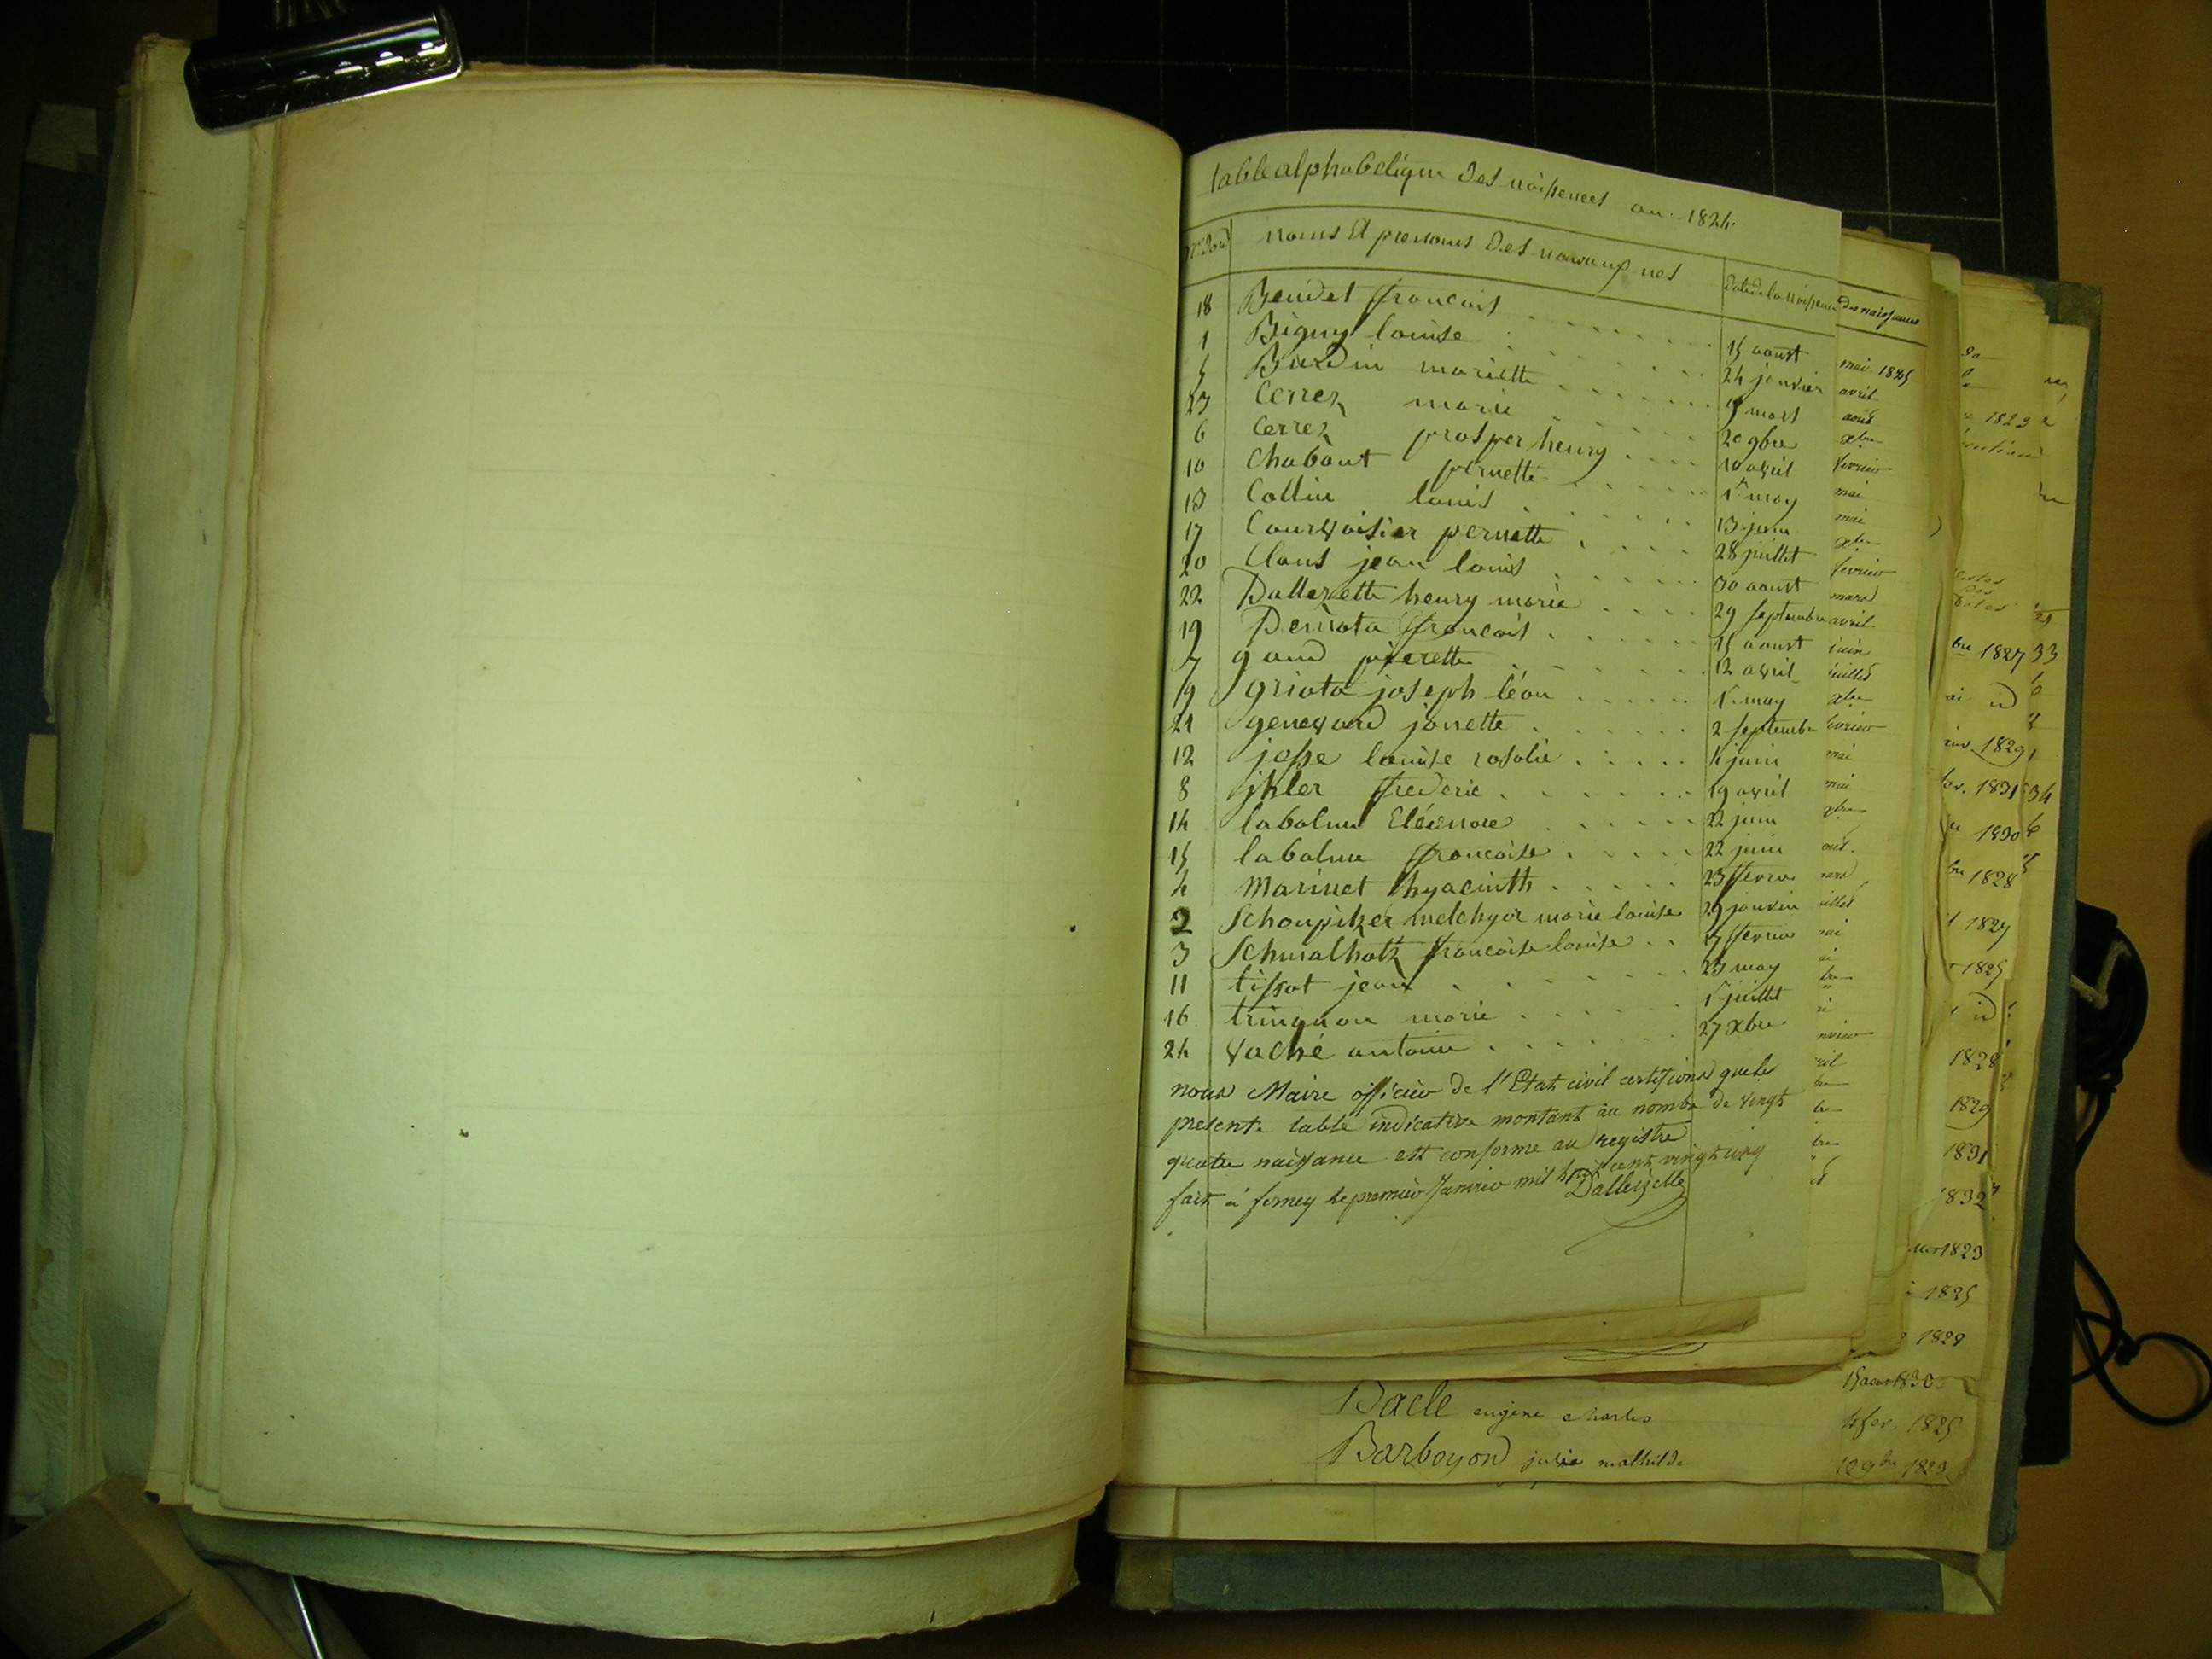 table alphabetique des naissences an 1824
Nos d'ord noms et prenoms des nouveaux nes date de la naissence
18 Beudet francois 15 aoust
1 Biguy louise 24 janvier
5 Burdin mariette 9 mars
23 Cerrez marie 20 9bre
6 Cerrez prosper henry 10 avril
10 Chabout pernette 1er may
13 Collin louis 13 juin
17 Courvoisier pernette 28 juillet
20 Claus jean louis 30 aoust
22 Dallezette henry marie 29 septembre
19 Deriota francois 15 aoust
7 gaud pierette 12 avril
9 griota joseph léon 1er may
21 genevard jonette 2 septembre
12 josse louise rosalie 4 juin
8 jkler frederic 19 avril
14 labalme Eléenore 22 juin
15 labalme francoise 22 juin
4 Marinet hyacinth 23 fevrier
2 Schoupiker melchyor marie louise 29 janvier
3 Schwalhotz francoise louise 7 fevrier
11 tissot jean 25 may
16 trinquou marie 1er juillet
24 vaché antoine 27 Xbre
nous Maire officier de l'Etat civil certifions que la
presente table indicative montant au nombre de vingt
quatre naissance est conforme au registre
fait à ferney le premier Janvier mil huit cent vingt cinq
Dallezette
des naissances
mai 1825
avril
août
xbre
fevrier
mai
mai
xbre
fevrier
mars
avril
juin
juillet
xbre
fevrier
mai
mai
xbre
1823
1827 33
1829
1831 34
1830
1828
1827
1825
id
1828
1829
1831
1832
1823
1825
1828
15 aout 1830
Bacle eugene charles 4 fev. 1825
Barboyon julie mathilde 10 9bre 1823